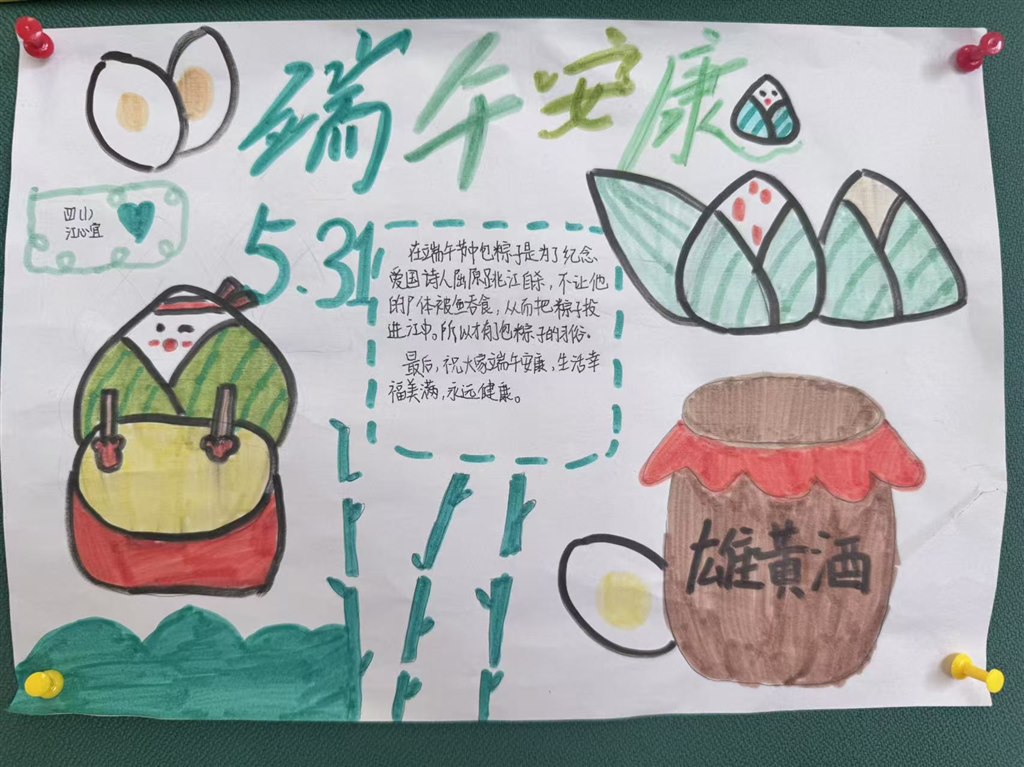 端午安康
四(1)
江心宜
5.31
在端午节中包粽子是为了纪念
爱国诗人屈原跳江自杀，不让他
的尸体被鱼吞食，从而把粽子投
进江中。所以才有包粽子的习俗.
最后，祝大家端午安康，生活幸
福美满，永远健康。
雄黄酒